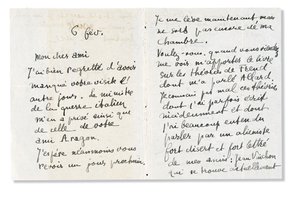 6 fév.
Mon cher ami
J'ai bien regretté d'avoir
manqué votre visite l'
autre jour. Le ministre
de la guerre italien
m'en a privé ainsi que
de celle de votre
ami Aragon.
J'espère néanmoins vous
revoir un jour prochain.
Je me lève maintenant, mais
ne sors pas encore de ma
chambre.
Voulez-vous, quand vous viendrez
me voir m'apporter le livre
sur les théories de Freud
dont m'a parlé Allard.
Je connais mal ces théories
dont j'ai parfois écrit
incidemment et dont
j'ai beaucoup entendu
parler par un aliéniste
fort disert et fort lettré
de mes amis: Jean Vinchon
qui se trouve actuellement